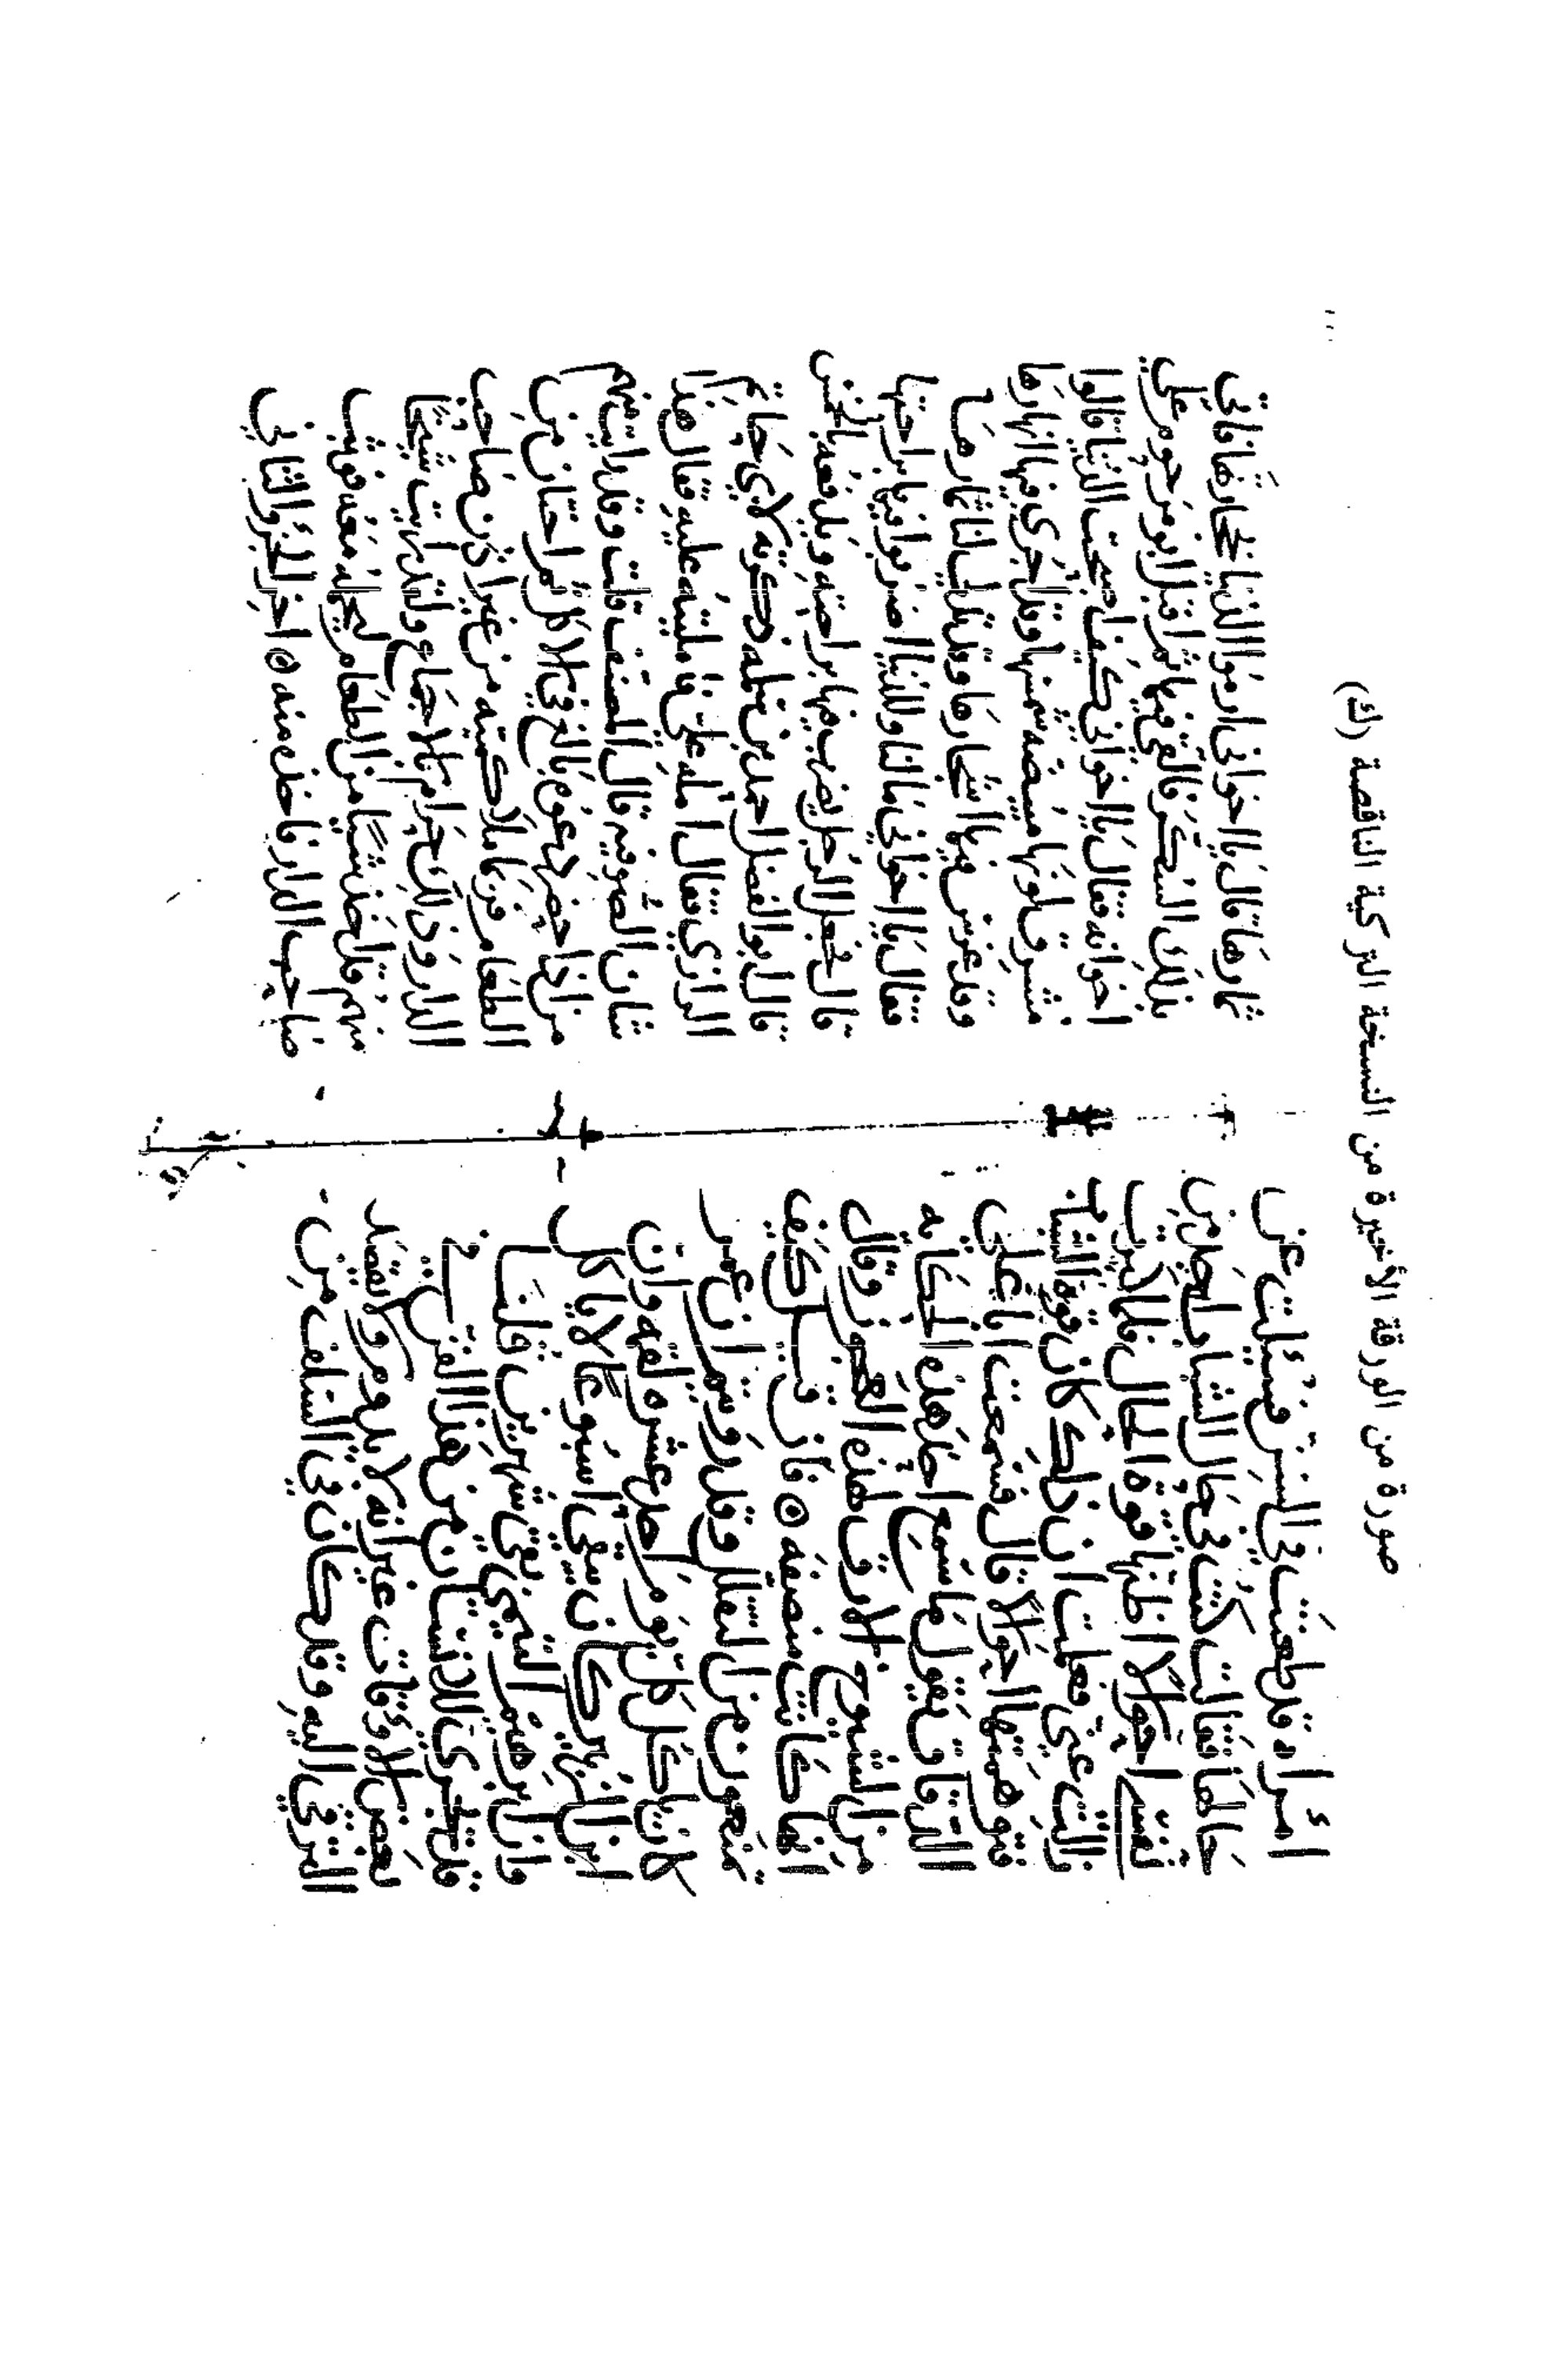 صورة من الورقة الأخيرة من النسخة التركية الناقصة (ك)
امراه قد طعنت في السن فسئلت عن
حالها فقالت كنت في حال الشباب اجد من
نفسي احوالا اظنها قوة الحال فلما كبرت
زالت عني فعلمت ان ذلك كان قوة الشباب
فتوهمتها احوالا قال فسمعت ابا علي
الدقاق يقول ما سمع احد هذه الحكايه
من الشيوخ الا رق لهذه العجوز وقال
انها كانت منصفه ⊙ فان قيل كيف
تمنعون من التقلل وقد رويتم ان عمر
كان ياكل كل يوم احد عشره لقمه وان
ابن الزبير كان يبقى اسبوعا لا ياكل
وان ابرهيم التيمي بقي شهرين قلنا
قد يجري للانسان من هذا الفن في
بعض الاوقات غير انه لا يدوم ولا يقصد
الترقي اليه وقد كان في السلف من
قال يا اخواني ارموا الدنيا بحجارتها فاتي
بذلك السكر فالقي فيها ثم اقبل ابو مرحوم علي
اخوانه فقال يا اخواني كيف اصبحت الدنيا قالوا
مشرق لونها مبيضه شمسها وقد اجري فيها انهارها
وقد غرس فيها اشجارها وقد تدلي لنا ثمارها
فقال يا اخواني مالنا وللدنيا اضربوا فيها براحتها
قال فجعل الرجل يضرب فيها براحته ويدفعه بالخمس
قال ابو الفضل احمد بن سلمه ذكرته لابي حاتم
الرازي فقال امله علي فامليته عليه فقال هذا
شان الصوفيه قال المصنف قلت وقد رايت منهم
من اذا حضر دعوه بالغ في الاكل ثم اختار من
الطعام فربما ملا كميه من غير اذن صاحب
الدار وذلك حرام بالاجماع ولقد رايت شيخا
منهم قد اخذ شيئا من الطعام ليحمله معه فوثب
صاحب الدار فاخذه منه ⊙ اخر الجزو الثاني